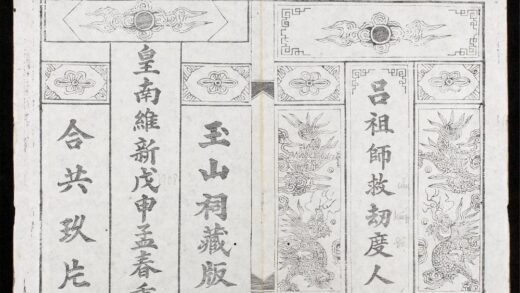 呂祖師救刼度人
玉山祠藏版
皇南維新戊申孟春
合共玖片